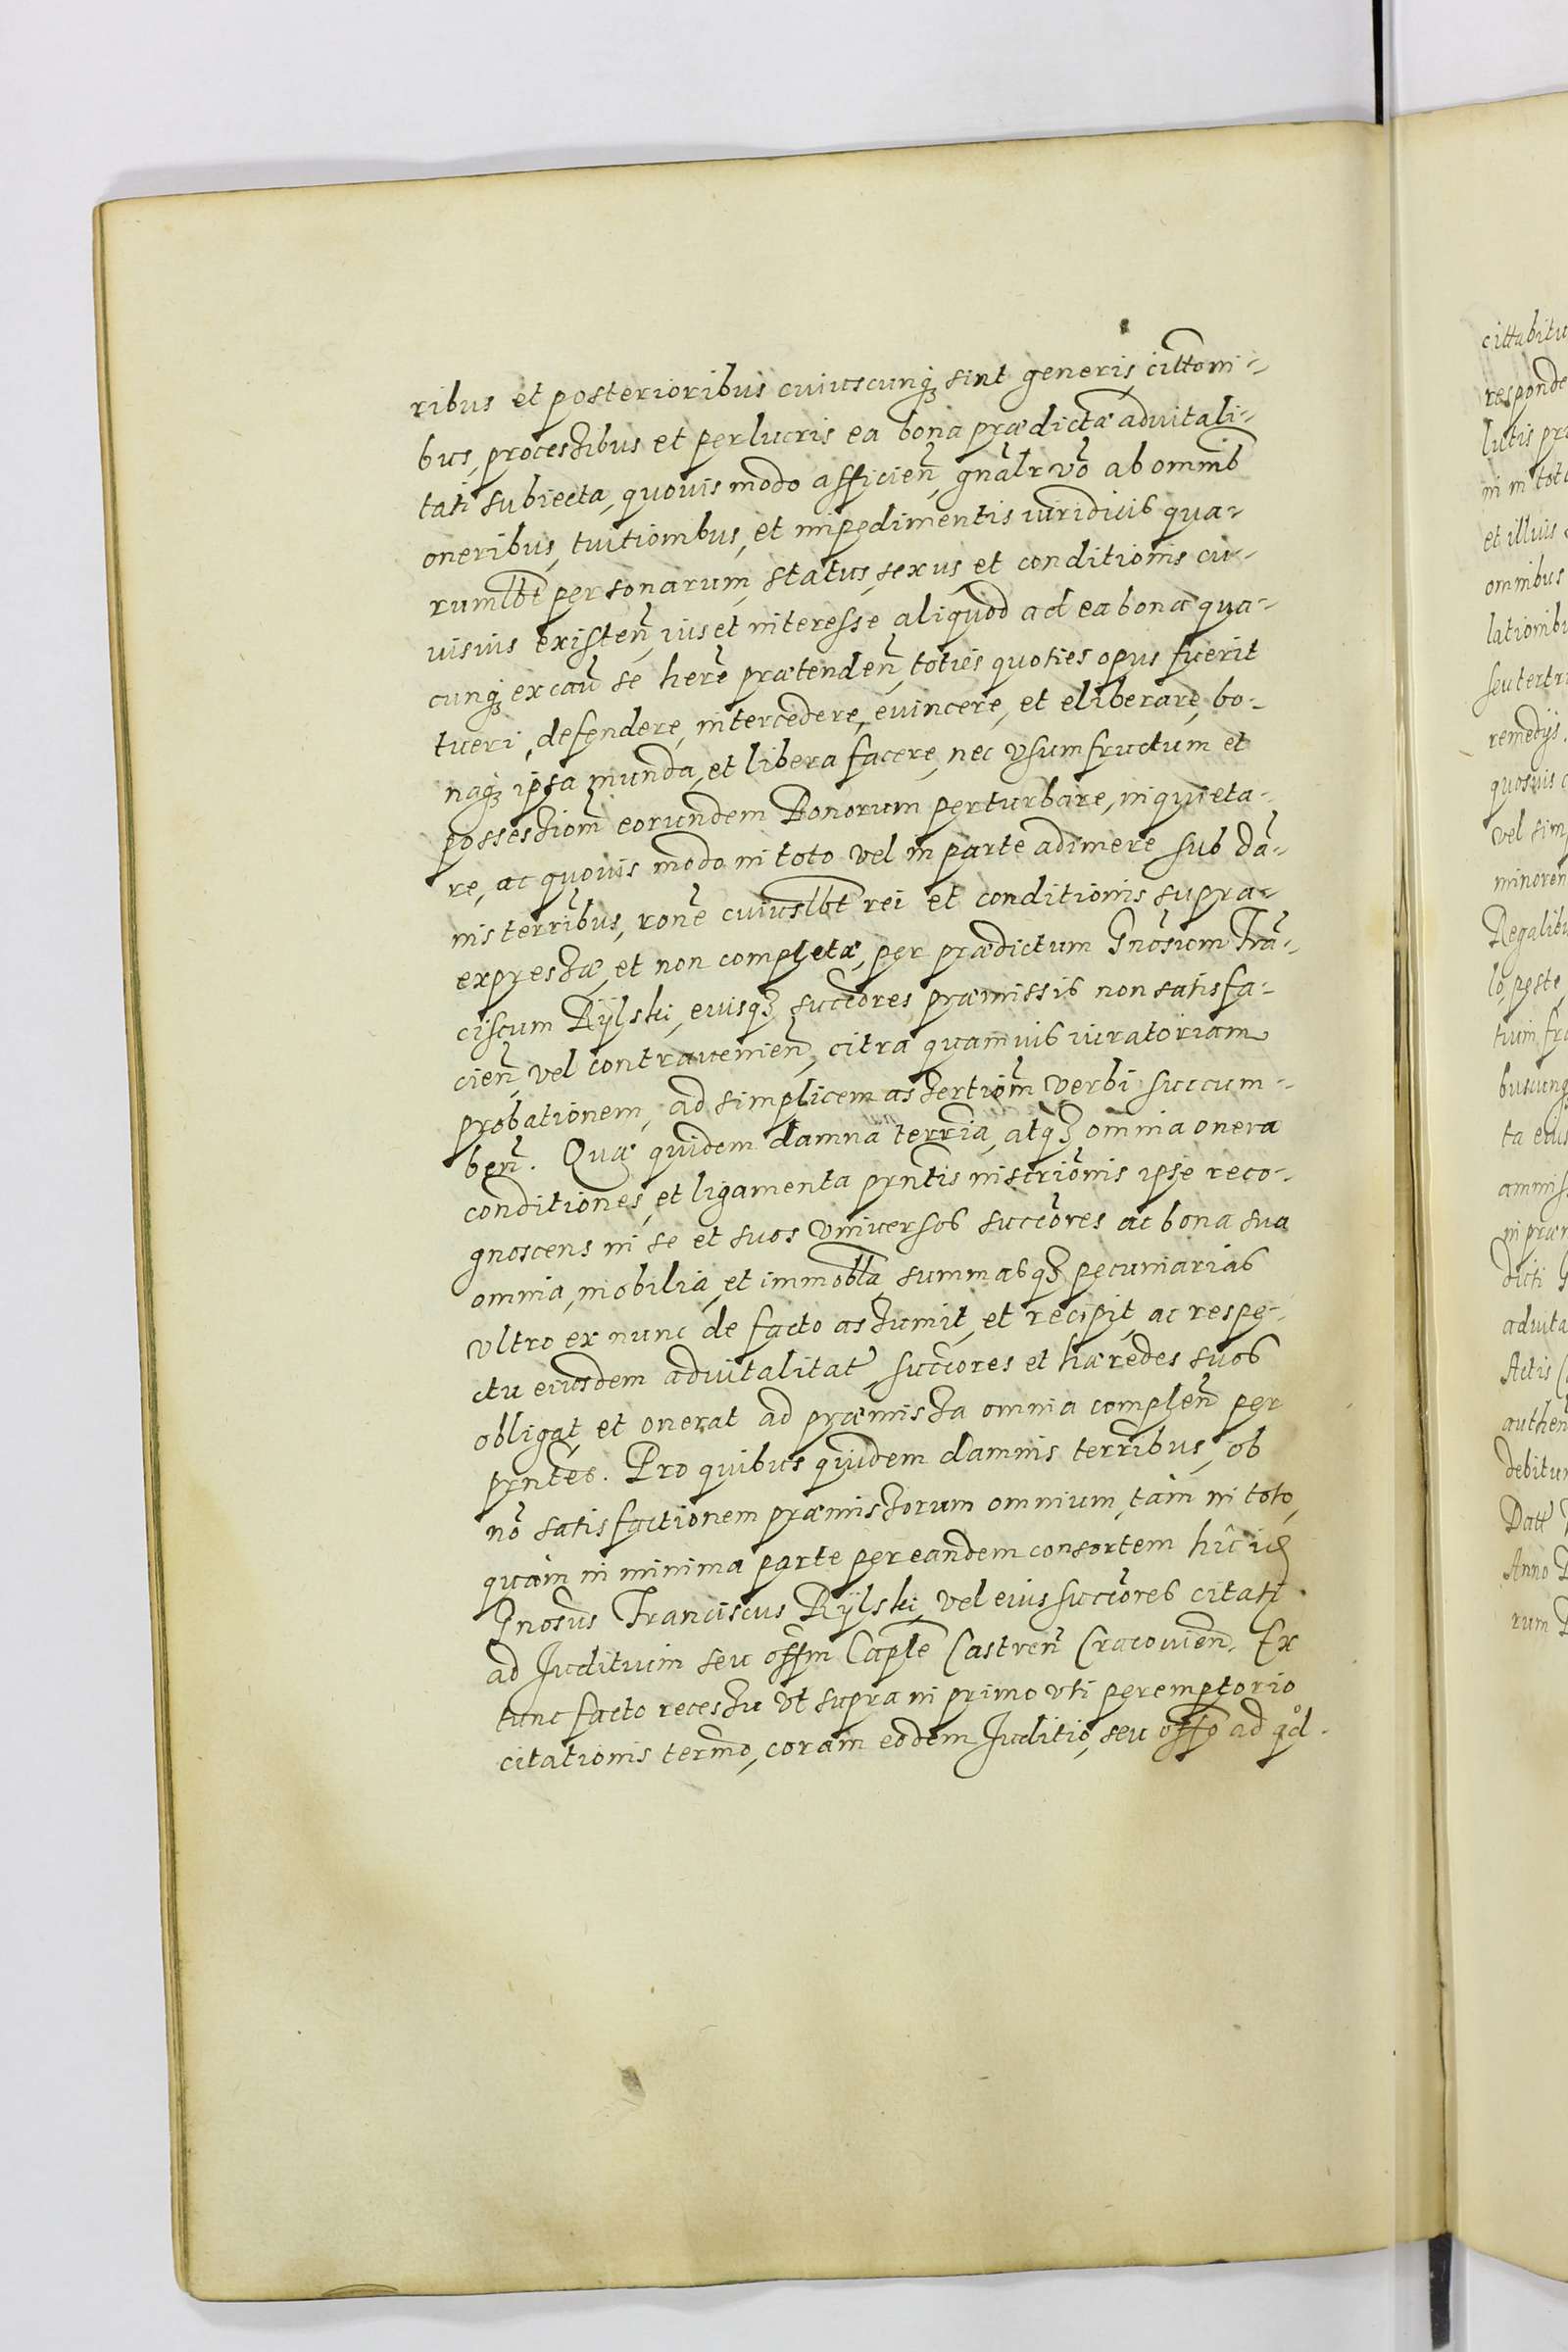 ribus et posterioribus cuiuscunq₃ sint generis, cittoni-
bus, processibus et perlucris ea bona prædictæ aduitali-
tati subiecta, quouis modo afficien̄, gn̄alr vō ab omnib
oneribus, tuitionibus, et impedimentis iuridicis qua-
rumlbt personarum, status, sexus, et conditionis cu-
iusuis existen̄, ius et interesse aliquod ad ea bona qua-
cunq₃ ex cau̅ se her̄e prætenden̄, toties quoties opus fuerit
tueri, defendere, intercedere, euincere, et eliberare, bo-
naq₃ ipsa munda, et libera facere, nec vsumfructum et
possessiōm eorundem Bonorum perturbare, inquieta-
re, ac quouis modo in toto vel in parte adimere sub da̅-
nis terr̄ibus, ron̄e cuiuslbt rei et conditionis supra-
expressæ, et non completæ, per prædictum Gn̄osum Fra̅-
ciscum Rÿlski, eiusq₃ succ̄ores præmissis non satisfa-
cien̄, vel contrauenien̄, citra quamuis iuratoriam
probationem, ad simplicem assertiōm verbi succum-
ben̄. Quæ quidem damna terr̄ia, atq₃ omnia onera
conditiones, et ligamenta prn̄tis inscriōnis ipse reco-
gnoscens in se et suos vniuersos succ̄ores ac bona sua
omnia, mobilia, et immobl̄a, summasq₃ pecuniarias
vltro ex nunc de facto assumit, et recipit, ac respe-
ctu eiusdem aduitalitat, succ̄ores et hæredes suos
obligat et onerat ad præmissa omnia complen̄ per
prn̄tes. Pro quibus quidem damnis terr̄ibus, ob
nō satisfactionem præmissorum omnium, tam in toto,
quàm in minima parte per eandem consortem hîc id
Gnosus Franciscus Rÿlski, vel eius succ̄ores citati
ad Juditium seu off̄m Capt̄le Castren̄ Cracouien̄. Ex
tunc facto recessu vt supra in primo vti peremptorio
citationis termō, coram eodem Juditio, seu off̄o ad qd
cittabitu
responde
lutis pr
ni in tot
et illuis
omnibus
lationib
seu tert
remedijs
quosuis
vel sim
minoren
Regalib
lo, peste
tium, fr
buscunq
ta eius
ammis
in præ
dicti G
aduita
Actis
authen
debitu
Datt
Anno D
rum